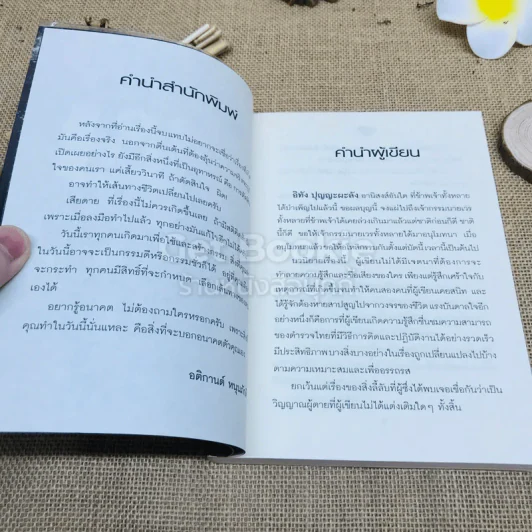 คำนำสำนักพิมพ์
หลังจากที่อ่านเรื่องนี้จบแทบไม่อยากจะเชื่อว่า
มันคือเรื่องจริง นอกจากตื่นเต้นที่ต้องลุ้นว่าความ
เปิดเผยอย่างไร ยังมีอีกสิ่งหนึ่งที่เป็นอุทาหรณ์ คือ
ใจของคนเรา แค่เสี้ยววินาที ถ้าตัดสินใจ ผิด!
อาจทำให้เส้นทางชีวิตเปลี่ยนไปเลยครับ
เสียดาย ที่เรื่องนี้ไม่ควรเกิดขึ้นเลย ถ้า
เพราะเมื่อลงมือทำไปแล้ว ทุกอย่างมัน
วันนี้เราทุกคนเกิดมาเพื่อใช้และ
ในวันนี้อาจจะเป็นกรรมดีหรือกรรมชั่วก็ได้
จะกระทำ ทุกคนมีสิทธิ์ที่จะกำหนด เลือกเส้นทาง
เองได้
อยากรู้อนาคต ไม่ต้องถามใครหรอกครับ เพราะ
คุณทำในวันนี้นั่นแหละ คือสิ่งที่จะบอกอนาคต
อติกานต์
คำนำผู้เขียน
อิทัง ปุญญะผะลัง อานิสงส์อันใด ที่ข้าพเจ้าทั้งหลาย
ได้บำเพ็ญไปแล้วนี้ ขอผลบุญนี้ จงแผ่ไปถึงเจ้ากรรมนายเวร
ทั้งหลายที่ข้าพเจ้าได้เคยล่วงเกินมาแล้วแต่ชาติก่อนก็ดี ชาติ
นี้ก็ดี ขอให้เจ้ากรรมนายเวรทั้งหลายได้มาอนุโมทนา เมื่อ
อนุโมทนาแล้ว
นวนิยายเรื่องนี้ ผู้เขียนไม่ได้มีเจตนาที่ต้องการจะ
ทำลายความรู้สึกและชื่อเสียงของใคร เพียงแต่รู้สึกเศร้าใจกับ
เหตุการณ์ที่เกิดขึ้นกับคนสองคนที่ผู้เขียนเคยสนิท และ
ได้รู้จักต้องหายสาปสูญไปจากวงจรของชีวิต แรงบันดาลใจอีก
อย่างหนึ่งก็คือการที่ผู้เขียนเกิดความรู้สึกชื่นชมความสามารถ
ของตำรวจไทยที่มีวิธีการคิดและปฏิบัติงานได้อย่างรวดเร็ว
มีประสิทธิภาพบางสิ่งบางอย่างในเรื่องถูกเปลี่ยนแปลงไปบ้าง
ตามความเหมาะสมและเพื่ออรรถรส
ยกเว้นแต่เรื่องของสิ่งลี้ลับที่ผู้ซึ่งได้พบเจอเชื่อกันว่าเป็น
วิญญาณผู้ตายที่ผู้เขียนไม่ได้แต่งเติมใดๆ ทั้งสิ้น